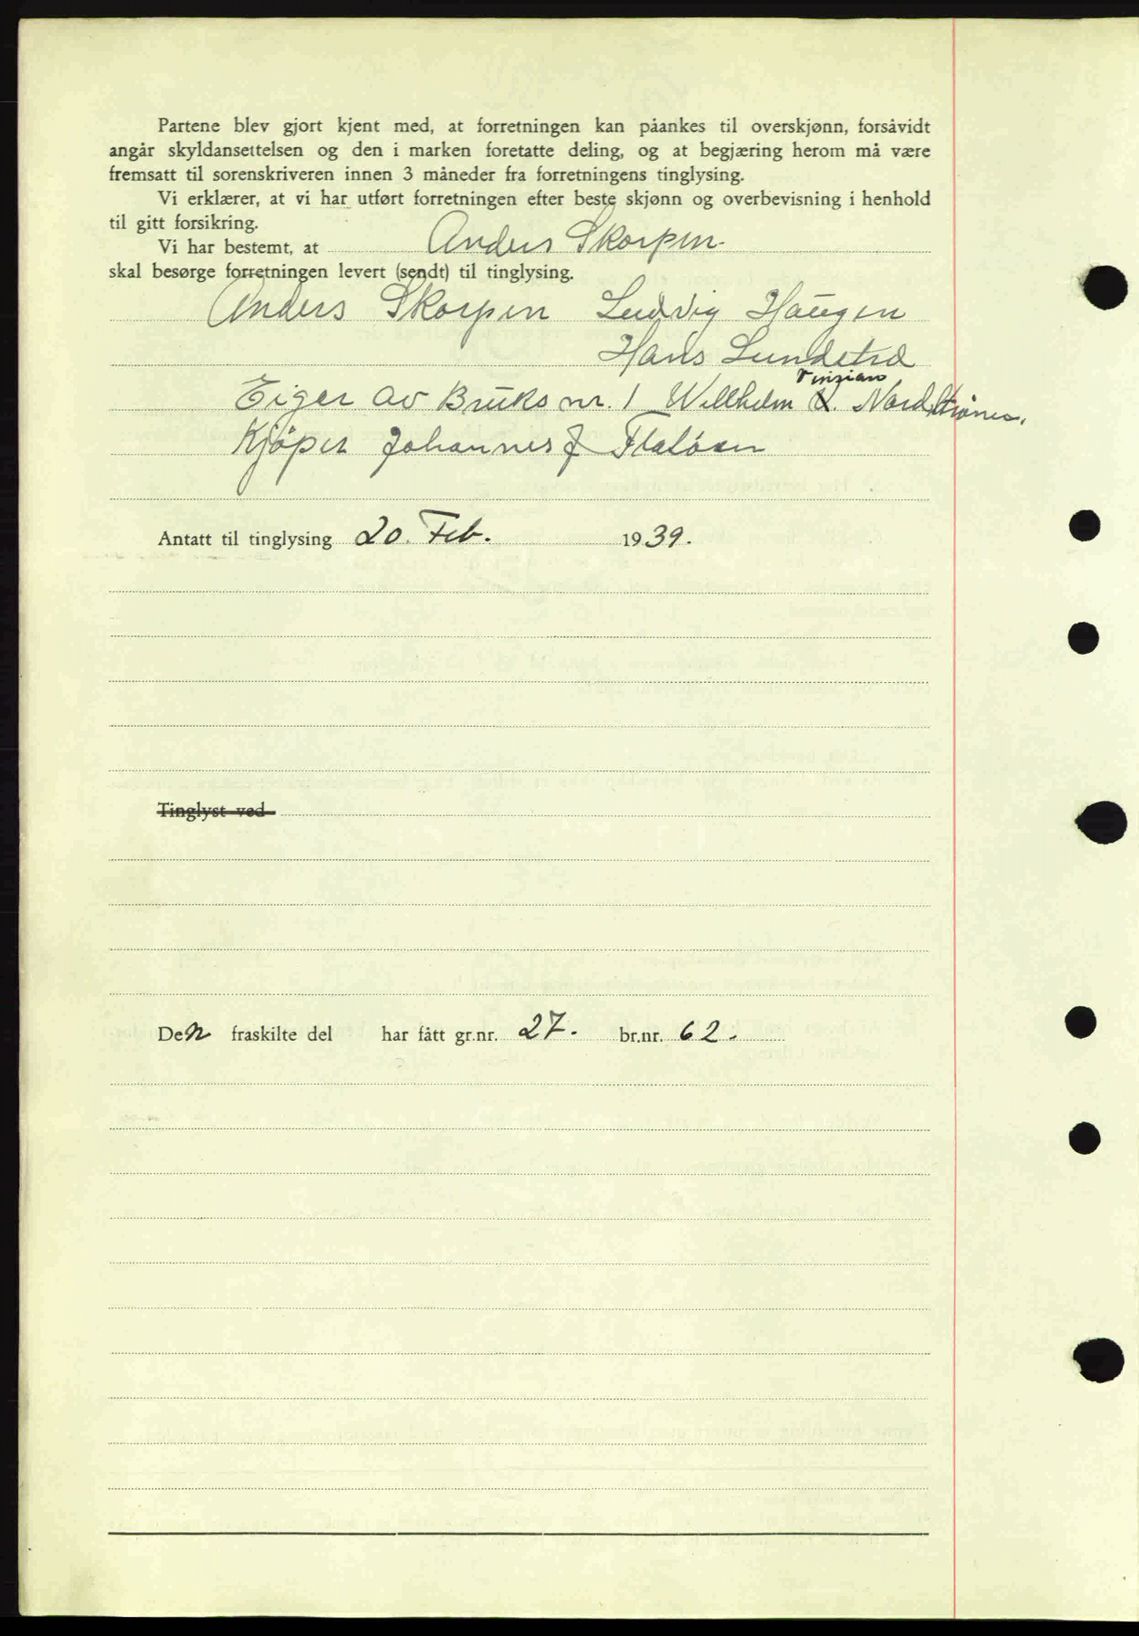 Partene blev gjort kjent med, at forretningen kan påankes til overskjønn, forsåvidt
angår skyldansettelsen og den i marken foretatte deling, og at begjæring herom må være
fremsatt til sorenskriveren innen 3 måneder fra forretningens tinglysing.
Vi erklærer, at vi har utført forretningen efter beste skjønn og overbevisning i henhold
til gitt forsikring.
Vi har bestemt, at Anders Skorpen
skal besørge forretningen levert (sendt) til tinglysing.
Anders Skorpen Ludvig Haugen
Hans Lundstad
Eiger av Bruks nr. 1 Willhelm
Kjøper Johannes J Flatøen
Antatt til tinglysing 20. Feb. 1939.
Tinglyst ved
Den fraskilte del har fått gr.nr. 27. br.nr. 62.